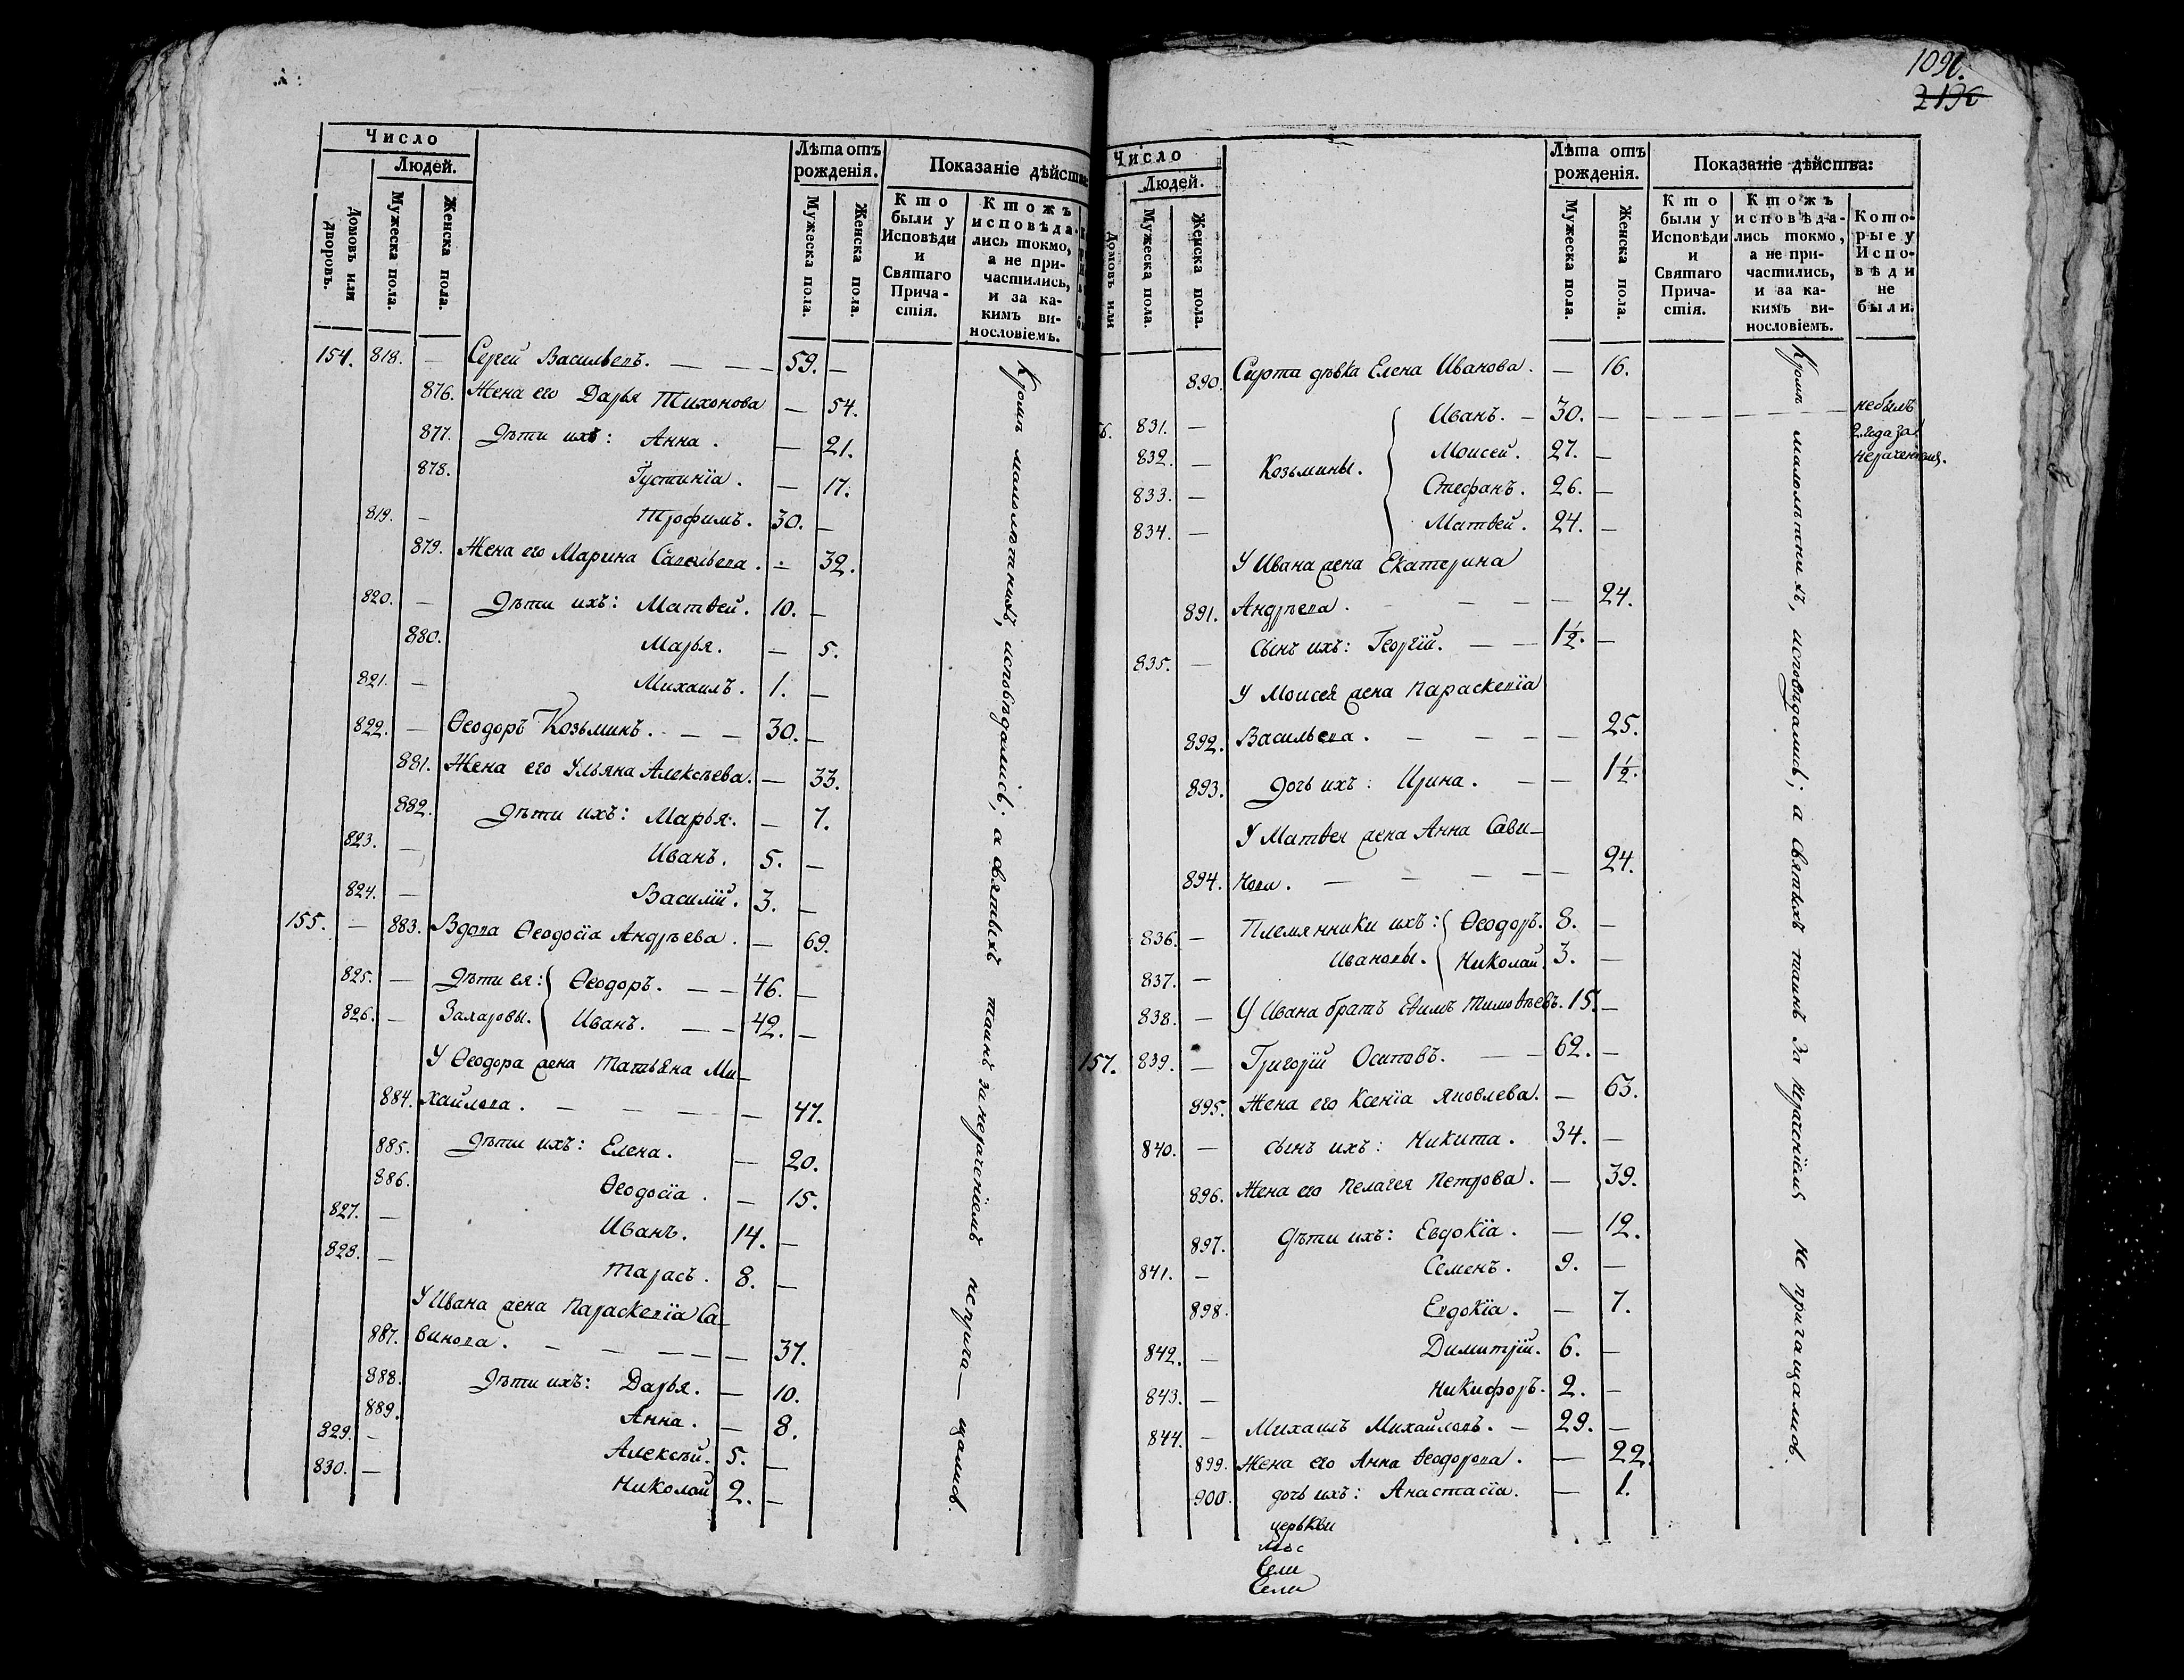 Число
Людей.
Домовъ или дворовъ.
Мужеска пола.
Женска пола.
Лѣта отъ рожденія.
Мужеска пола.
Женска пола.
Показаніе дѣйства
Кто были у Исповѣди и Святаго Причастія.
Ктожъ исповѣдались токмо, а не причастились, и за какимъ винословіемъ.
154. 818. — Сергей Васильевъ. — — — 59. —
876. Жена его Дарья Тихонова — 54.
877. Дѣти ихъ: Анна. — 21.
878. Іустинїа. — 17.
819. — Трофимъ. 30. —
879. Жена его Марина Савельева. — 32.
820. — Дѣти ихъ: Матѳей. 10. —
880. Марья. — 5.
821. — Михаилъ. 1. —
822. — Ѳеодоръ Козьминъ. — — 30. —
881. Жена его Ульяна Алексѣева. — 33.
882. Дѣти ихъ: Марья. — 7.
823. — Иванъ. 5. —
824. — Василїй. 3. —
155. — 883. Вдова Ѳеодосїа Андрѣева. — 69.
825. — Дѣти ея: Ѳеодоръ. — — 46. —
826. — Захаровы. Иванъ. — — 42. —
У Ѳеодора жена Татьяна Ми-
884. хайлова. — — — — 47.
885. Дѣти ихъ: Елена. — 20.
886. Ѳеодосїа. — 15.
827. — Иванъ. 14. —
828. — Тарасъ. 8. —
У Ивана жена Параскевїа Са-
887. винова. — — — — — 37.
888. Дѣти ихъ: Дарья. — 10.
889. Анна. — 8.
829. — Алексѣй. 5. —
830. — Николай 2. —
Кромѣ малолѣтнихъ, исповѣдались; а святыхъ таинъ за нераченіемъ не прича— щались.
1091.
2190
Число
Людей.
Домовъ или
Мужеска пола.
Женска пола.
Лѣта отъ рожденія.
Мужеска пола.
Женска пола.
Показаніе дѣйства:
Кто были у Исповѣди и Святаго Причастія.
Ктожъ исповѣдались токмо, а не причастились, и за какимъ винословіемъ.
Которые у Исповѣди не были.
890. Сирота дѣвка Елена Иванова. — 16.
6. 831. — Иванъ. — 30. — — — — — — — не былъ
2 года за
нераченіемъ.
832. — Козьмины. Моисей. 27. —
833. — Стефанъ. 26. —
834. — Матѳей. 24. —
У Ивана жена Екатерина
891. Андрѣева. — — — — 24.
835. — Сынъ ихъ: Георгїй. — — 1½. —
У Моисея жена Параскевїа
892. Васильева. — — — — 25.
893. Дочь ихъ: Ирина. — — 1½.
У Матѳея жена Анна Сави-
894. нова. — — — — — 24.
836. — Племянники ихъ: Ѳеодоръ. 8. —
837. — Ивановы. Николай. 3. —
838. — У Ивана братъ Еѳимъ Тимоѳѣевъ. 15. —
157. 839. — Григорїй Осиповъ. — — 62. —
895. Жена его Ксенїа Яковлева. — 63.
840. — Сынъ ихъ: Никита. 34. —
896. Жена его Пелагея Петрова. — 39.
897. Дѣти ихъ: Евдокїа. — 12.
841. — Семенъ. 9. —
898. Евдокїа. — 7.
842. — Димитрїй. 6. —
843. — Никифоръ. 2. —
844. — Михаилъ Михайловъ. — 29. —
899. Жена его Анна Ѳеодорова. — 22.
900. дочь ихъ: Анастасїа. — 1.
церькви
Сели
Сели
Кромѣ малолѣтнихъ, исповѣдались; а святыхъ таинъ за нераченїемъ не причащались.